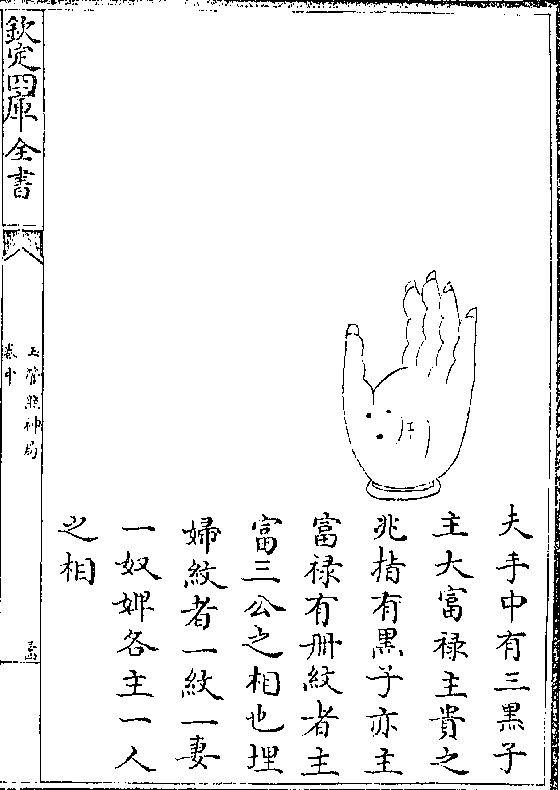 夫手中有三黒子
主大富禄主貴之
兆指有黒子亦主
富禄有册紋者主
富三公之相也埋
婦紋者一紋一妻
一奴婢各主一人
之相
欽定四庫全書
玉管照神局
卷中